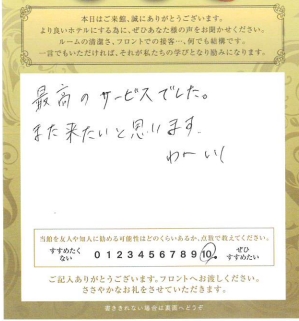 本日はご来館、誠にありがとうございます。
より良いホテルにする為に、ぜひあなた様の声をお聞かせください。
ルームの清潔さ、フロントでの接客…、何でも結構です。
一言でもいただければ、それが私たちの学びとなり励みになります。
最高のサービスでした。
また来たいと思います。
わーい
当館を友人や知人に勧める可能性はどのくらいあるか、点数で教えてください。
すすめたくない 0 1 2 3 4 5 6 7 8 9 10 ぜひすすめたい
ご記入ありがとうございます。フロントへお渡しください。
ささやかなお礼をさせていただきます。
書ききれない場合は裏面へどうぞ